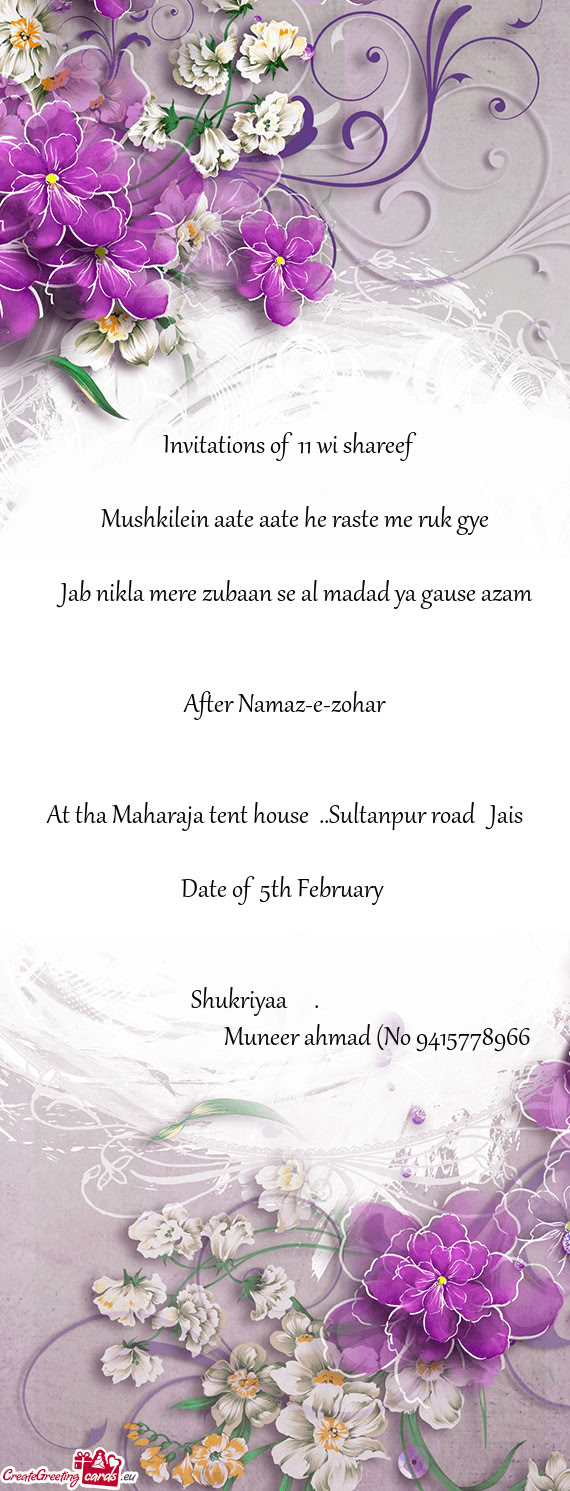 Invitations of 11 wi shareef
Mushkilein aate aate he raste me ruk gye
Jab nikla mere zubaan se al madad ya gause azam
After Namaz-e-zohar
At tha Maharaja tent house ..Sultanpur road Jais
Date of 5th February
Shukriyaa .
Muneer ahmad (No 9415778966
CreateGreeting cards .eu